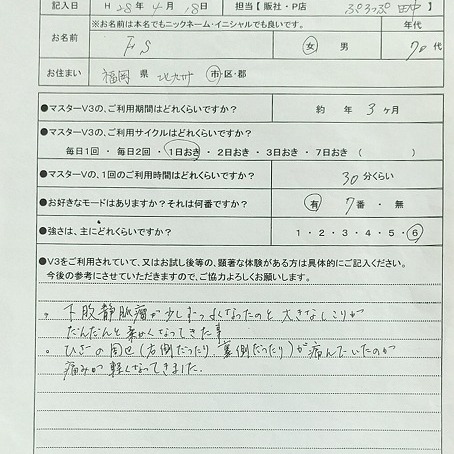 記入日 H 28年 4月 18日 担当【 販社・P店 ぷろっぷ 田中 】
※お名前は本名でもニックネーム・イニシャルでも良いです。 年代
お名前 F S 女 男 70代
お住まい 福岡 県 北九州 市・区・郡
●マスターV3の、ご利用期間はどれくらいですか? 約 年 3ヶ月
●マスターV3の、ご利用サイクルはどれくらいですか?
毎日1回 ・ 毎日2回 ・ 1日おき ・ 2日おき ・ 3日おき ・ 7日おき ( )
●マスターVの、1回のご利用時間はどれくらいですか? 30分くらい
●お好きなモードはありますか?それは何番ですか? 有 7番 ・ 無
●強さは、主にどれくらいですか? 1・2・3・4・5・6
●V3をご利用されていて、又はお試し後等の、顕著な体験がある方は具体的にご記入ください。
今後の参考にさせていただきますので、ご協力よろしくお願いします。
。下肢静脈瘤が少しずつよくなったのと大きなしこりが
だんだんと柔かくなってきた事
。ひざの周辺(右側だったり、裏側だったり)が病んでいたのが
痛みが軽くなってきました.